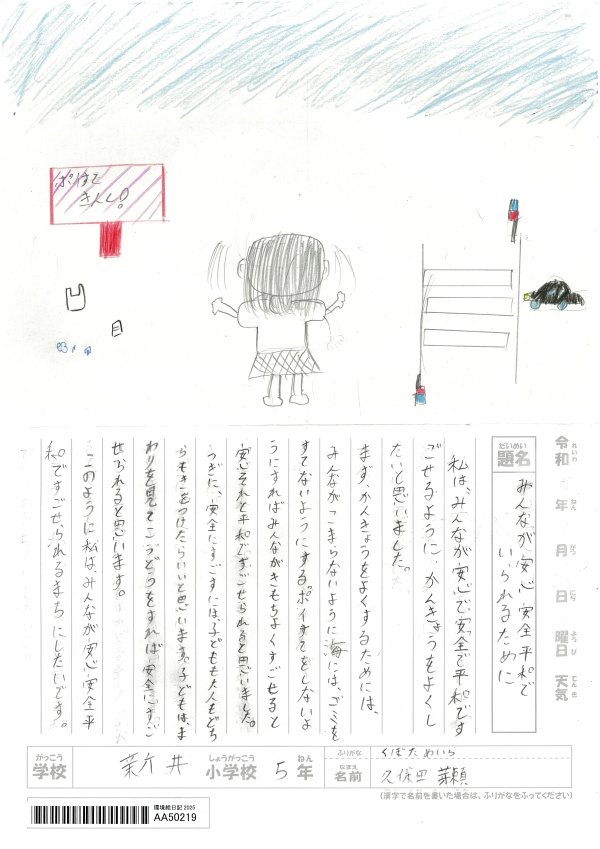 ポイすて
きんし!
令和 年 月 日 曜日 天気
れいわ ねん がつ にち ようび てんき
だいめい
題名
みんなが安心安全平和で
いられるために
私は、みんなが安心で安全で平和です
ごせるように、かんきょうをよくし
たいと思いました。
まず、かんきょうをよくするためには、
みんながこまらないように海には、ゴミを
すてないようにする。ポイすてをしないよ
うにすればみんながきもちよくすごせると
安心それと平和ですごせられると思いました。
つぎに、安全にすごすには、子どもも大人もどち
らもきをつけたらいいと思います。子どもは、ま
わりを見てこうどうをすれば、安全にすご
せられると思います。
このように私は、みんなが安心安全平
和ですごせられるまちにしたいです。
がっこう しょうがっこう ねん
学校 新井 小学校 5年
ふりがな くぼた めいら
なまえ
名前 久保田
(漢字で名前を書いた場合は、ふりがなをふってください)
環境絵日記 2025
AA50219